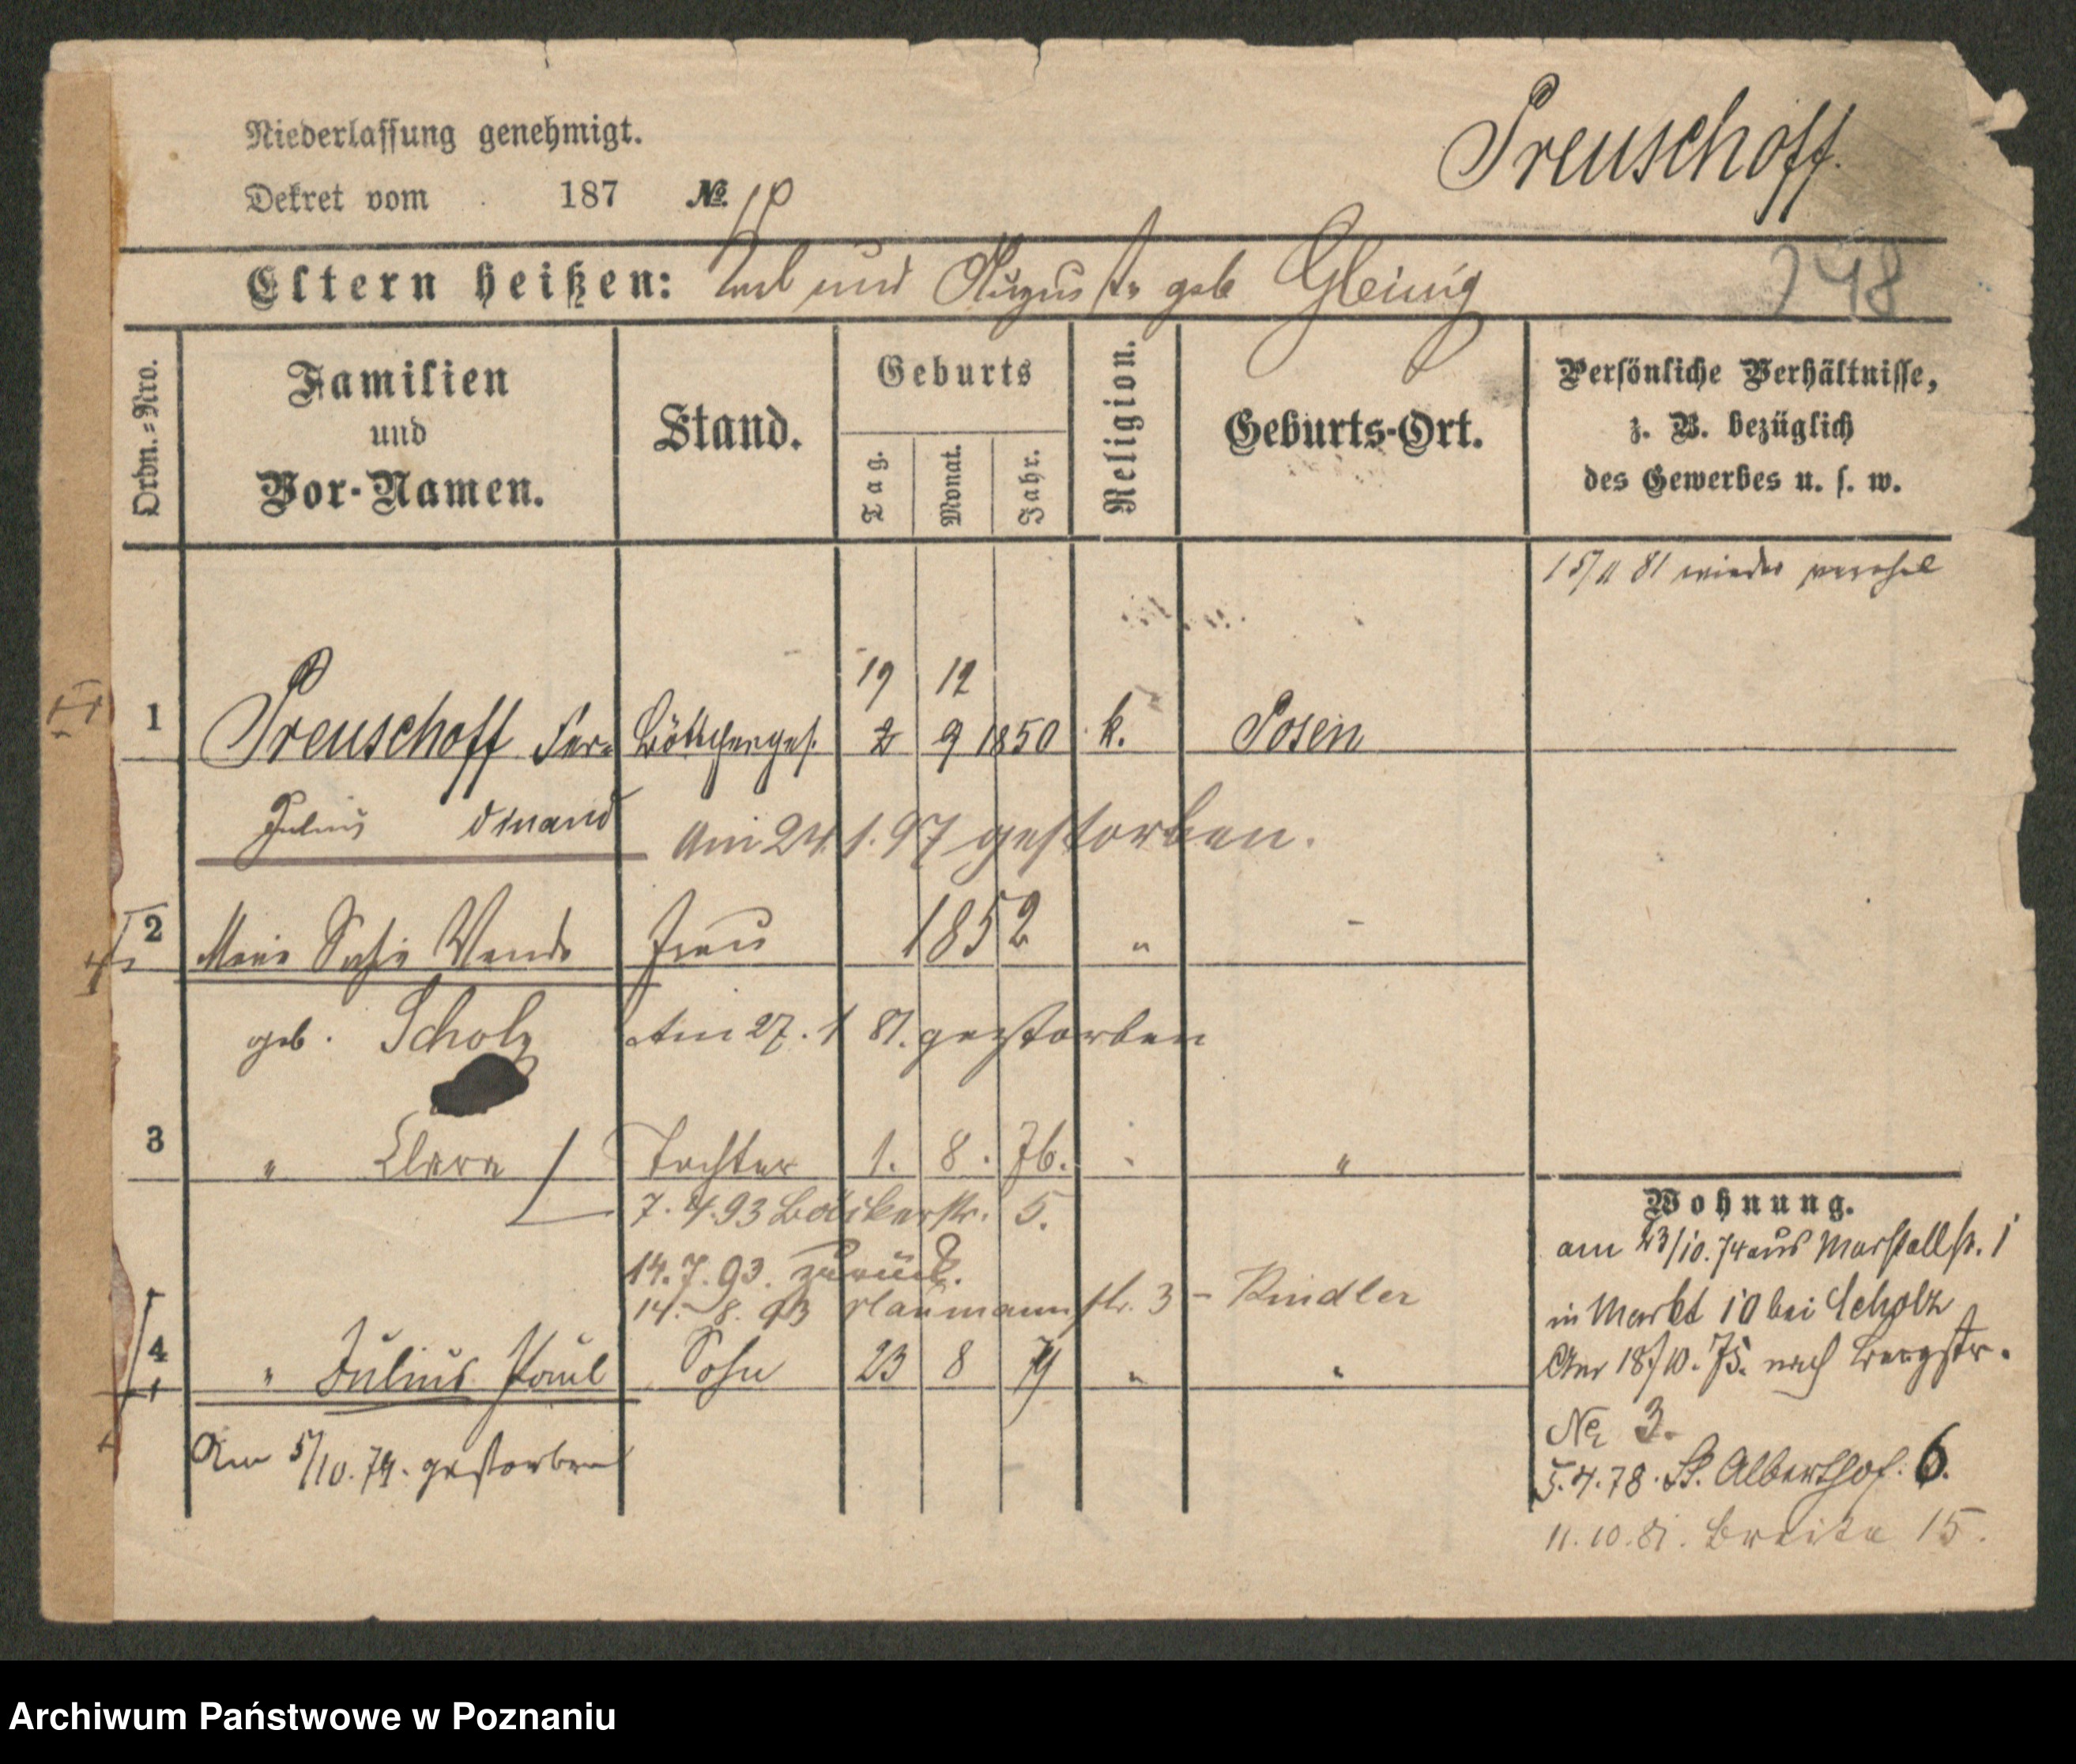 Niederlassung genehmigt.
Preuschoff.
Dekret vom 187 No.
Eltern heißen: Paul und Auguste geb Gleinig
248
Ordn.-Nro.
Familien
und
Vor-Namen.
Stand.
Geburts
Tag.
Monat.
Jahr.
Religion.
Geburts-Ort.
Persönliche Verhältnisse,
z. B. bezüglich
des Gewerbes u. s. w.
81 wieder
19 12
1 Preuschoff Fer= Böttcherges. 2 9 1850 k. Posen
Julius dinand
Am 24. 1. 97 gestorben.
2 Frau 1852 "
geb. Scholz Am 27. 1 81. gestorben
3 " Clara Tochter 1. 8. 76. "
7. 4. 93 Bäckerstr. 5.
14. 7. 93. zurück.
14. 8. 93 Naumannstr. 3 - Kindler
4 " Julius Paul Sohn 23 8 79 " "
Am 5/10. 79. gestorben
Wohnung.
am 23/10. 74 aus Marstallstr. 1
in Markt 10 bei Scholz
Am 18/10. 75. nach Bergstr.
No 3.
5. 4. 78. St. Alberthof. 6.
11. 10. 81. Breite 15.
Archiwum Państwowe w Poznaniu